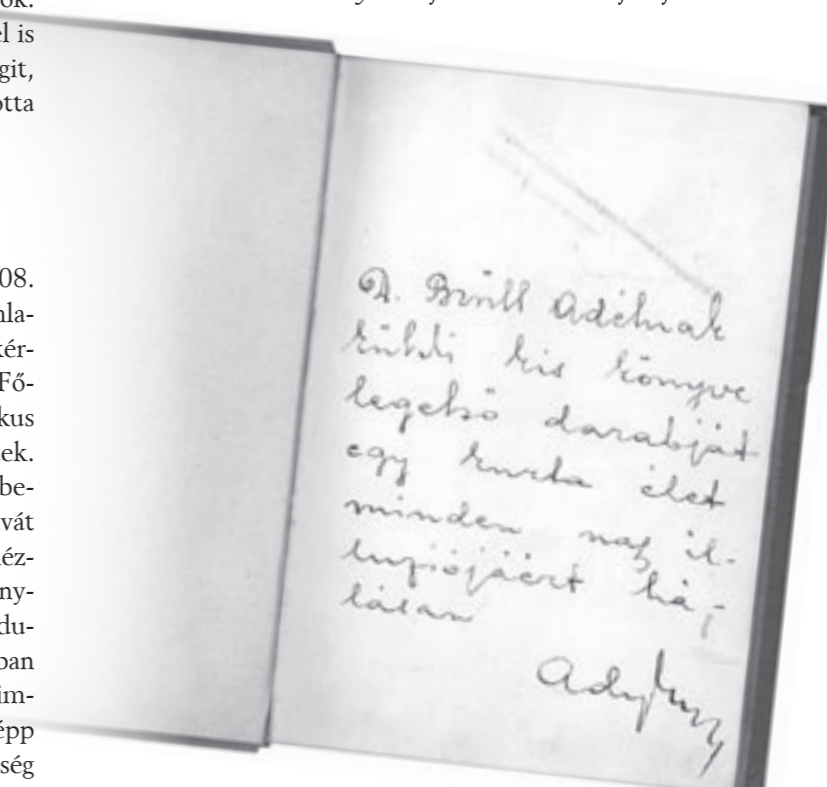 el is
git,
otta
08.
nla-
kér-
Fő-
kus
ek.
be-
vát
éz-
ny-
du-
ban
im-
épp
ség
D. Brüll Adélnak
küldi kis könyve
legelső darabját
egy kurta élet
minden nagy il-
luziójáért há-
lásan
Ady Endre